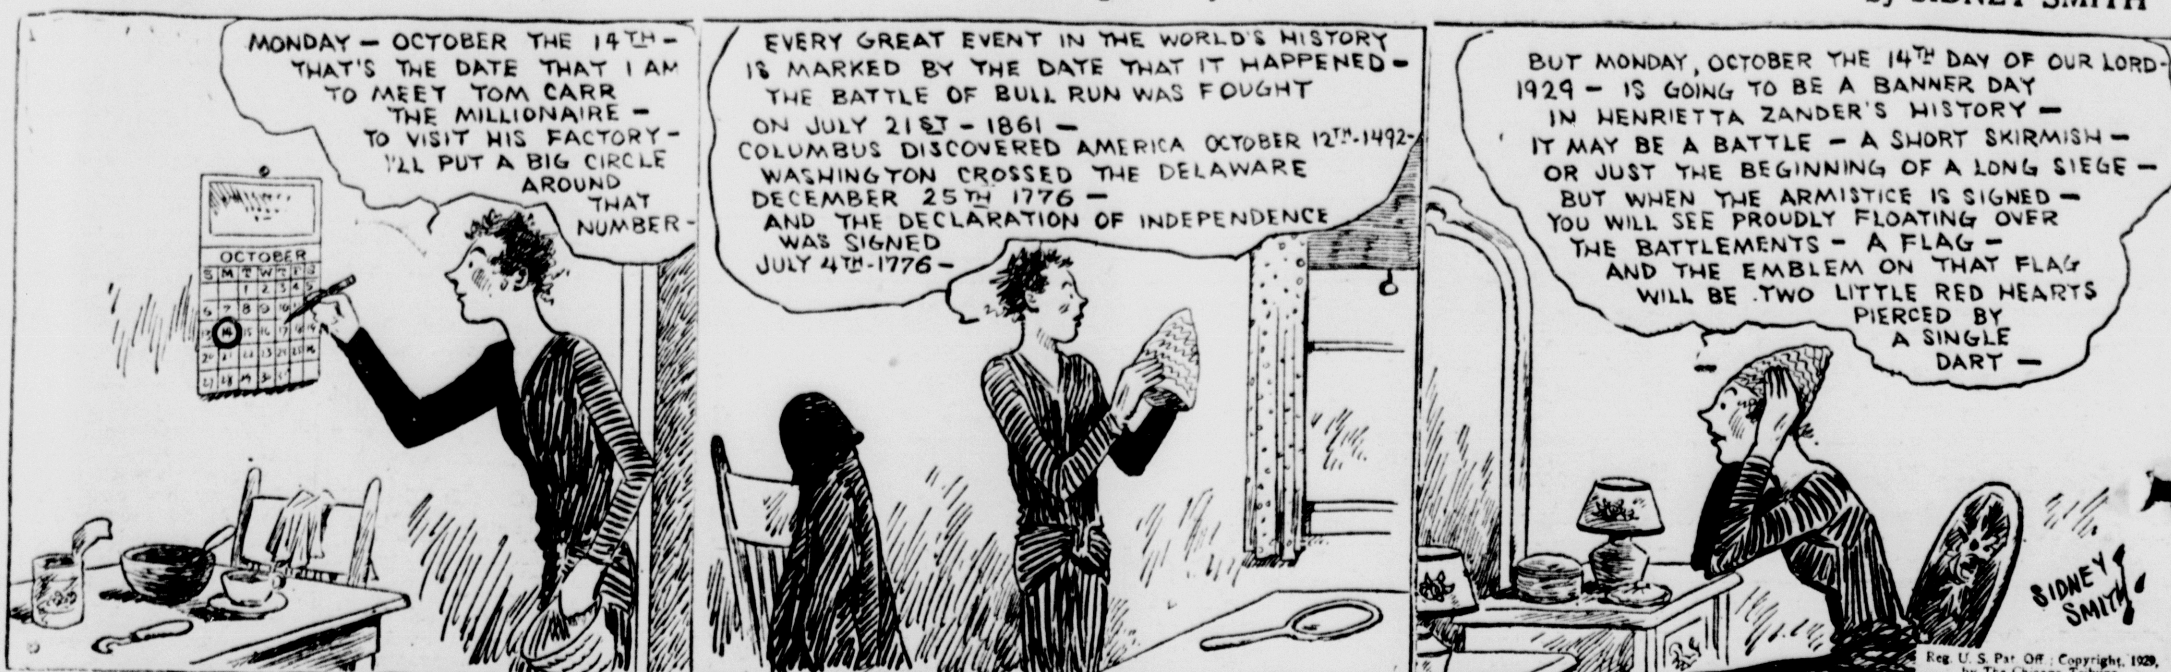 by SIDNEY SMITH
MONDAY — OCTOBER THE 14TH —
THAT'S THE DATE THAT I AM
TO MEET TOM CARR
THE MILLIONAIRE —
TO VISIT HIS FACTORY —
I'LL PUT A BIG CIRCLE
AROUND
THAT
NUMBER -
OCTOBER
S M T W T F S
1 2 3 4 5
6 7 8 9 10
13 14 15 16 17 18 19
20 21 22 23 24 25 26
27 28 29 30 31
EVERY GREAT EVENT IN THE WORLD'S HISTORY
IS MARKED BY THE DATE THAT IT HAPPENED —
THE BATTLE OF BULL RUN WAS FOUGHT
ON JULY 21ST - 1861 —
COLUMBUS DISCOVERED AMERICA OCTOBER 12TH-1492-
WASHINGTON CROSSED THE DELAWARE
DECEMBER 25TH 1776 —
AND THE DECLARATION OF INDEPENDENCE
WAS SIGNED
JULY 4TH-1776 —
BUT MONDAY, OCTOBER THE 14TH DAY OF OUR LORD-
1929 — IS GOING TO BE A BANNER DAY
IN HENRIETTA ZANDER'S HISTORY —
IT MAY BE A BATTLE — A SHORT SKIRMISH —
OR JUST THE BEGINNING OF A LONG SIEGE —
BUT WHEN THE ARMISTICE IS SIGNED —
YOU WILL SEE PROUDLY FLOATING OVER
THE BATTLEMENTS — A FLAG —
AND THE EMBLEM ON THAT FLAG
WILL BE TWO LITTLE RED HEARTS
PIERCED BY
A SINGLE
DART —
SIDNEY
SMITH
Reg. U. S. Pat. Off.: Copyright, 1929,
by The Chicago Tribune